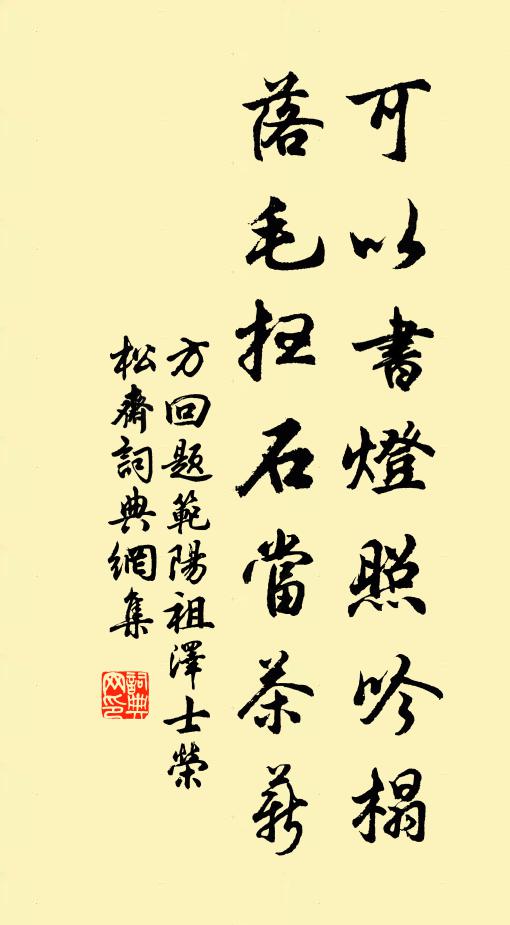 可以書燈照吟榻
落毛扫石當茶薪
方回题範陽祖澤士榮
松齋詞典網集
詞典網印